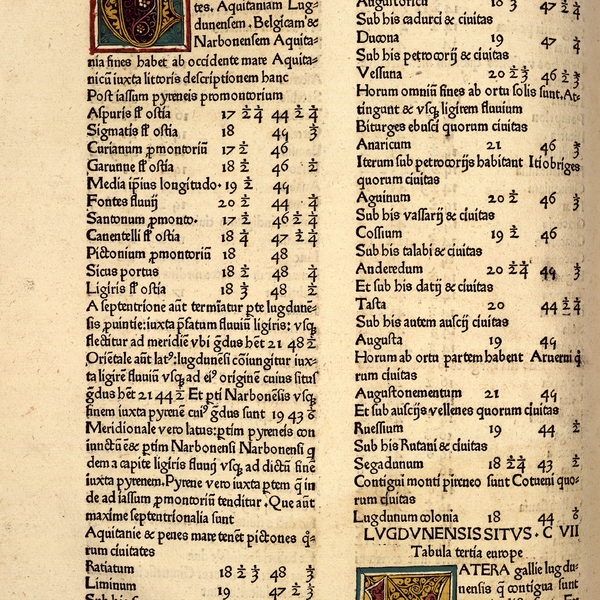 tes. Aquitaniam Lug⸗
dunensem. Belgicam & 
Narbonensem Aquita⸗
nia fines habet ab occidente mare Aquita⸗
nicū iuxta littoris descriptionem hanc
Post iassum pyreneis promontorium
Aspuris fl̄ ostia 17 ½ ¼ 44 ½ ¼
Sigmatis fl̄ ostia 18 45 ⅓
Curianum ꝓmontoriū 17 ½ 46
Garunne fl̄ ostia 17 ½ 46 ½
Media ip̄ius longitudo. 19 ½ 45
Fontes fluuij 20 ½ 44 ¼
Santonum ꝓmonto. 17 ½ 46 ½ ¼
Canentelli fl̄ ostia 18 ¼ 47 ½ ¼
Pictonium ꝓmontoriū 18 48
Sicus portus 18 ½ 48 ¼
Ligiris fl̄ ostia 18 ⅓ 48 ½
A septentrione aūt termīatur ꝑte lugdunē⸗
sis ꝓuintie: iuxta p̄fatum fluuiū ligiris: vsqꝫ
flectitur ad meridiē vbi ḡdus hēt 21 48 ½
Oriētale aūt latꝰ: lugdunēsi cōiungitur iux⸗
ta ligirē fluuiū vsqꝫ ad eiꝰ originē cuius situs
ḡdus hēt 21 44 ½ Et ꝑti Narbonēsis vsqꝫ
finem iuxta pyrenē cuiꝰ ḡdus sunt 19 43 ⅙
Meridionale vero latus: ꝑtim pyreneis con
iunctū ē & ꝑtim Narbonensi Narbonensi q̄
dem a capite ligiris fluuij vsqꝫ ad dictū finē
iuxta pyrenem. Pyrene vero iuxta ꝑtem q̄ in
de ad iassum ꝓmontoriū tenditur. Que aūt
maxime septentrionalia sunt
Aquitanie & penes mare tenēt pictones q̄⸗
rum ciuitates
Ratiatum 18 ½ ⅓ 48 ⅓
Liminum 19 47 ½ ⅓
Augustoricū 18 ⅓ 47 ½ ¼
Sub his cadurci & ciuitas
Ducona 19 47 ¼
Sub his petrocorij & ciuitas
Vessuna 20 ½ ⅓ 46 ½
Horum omniū fines ab ortu solis sunt. At⸗
tingunt & vsqꝫ ligirem fluuium
Biturges ebusci quorum ciuitas
Anaricum 21 46
Iterum sub petrocorijs habitant Itiobriges
quorum ciuitas
Aguinum 20 ½ 46 ⅓
Sub his vassarij & ciuitas
Cossium 19 ½ 46
Sub his talabi & ciuitas
Anderedum 20 ½ ¼ 45 ⅓
Et sub his datij & ciuitas
Tasta 20 44 ½ ¼
Sub his autem auscij ciuitas
Augusta 19 45
Horum ab ortu partem habent Aruerni q̄
rum ciuitas
Augustonementum 21 45
Et sub auscijs vellenes quorum ciuitas
Ruessium 19 44 ½
Sub his Rutani & ciuitas
Segadunum 18 ½ ¼ 43 ½
Contigui monti pireneo sunt Cotueni quo⸗
rum ciuitas
Lugdunum colonia 18 44 ⅙
LVGDVNENSIS SITVS. C VII
Tabula tertia europe
ATERA gallie lugdu⸗
nensis q̄ contigua sunt